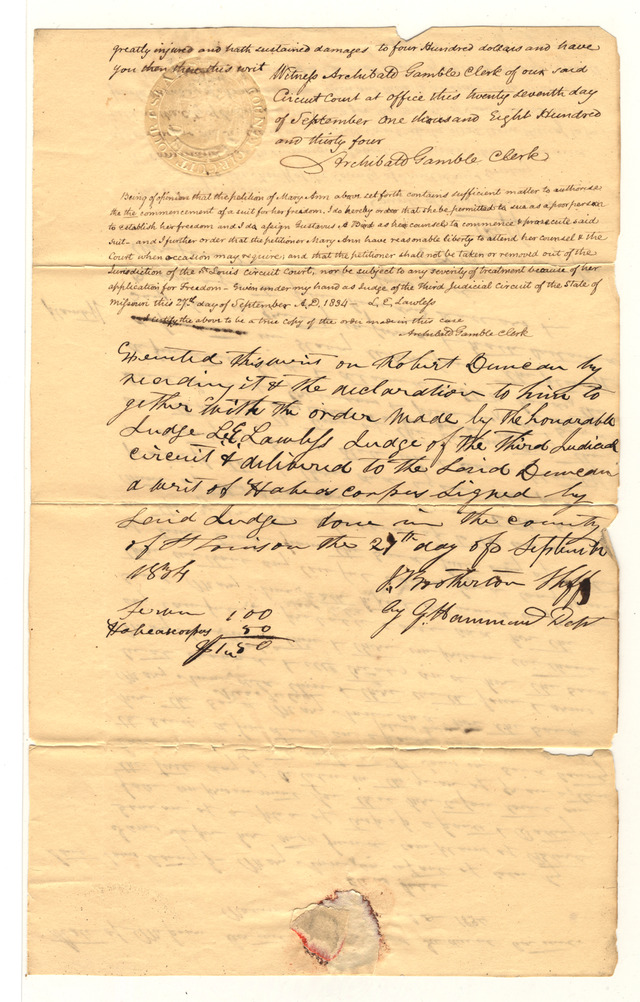 greatly injured and hath sustained damages to four Hundred dollars and have
you then there this writ
Witness Archibald Gamble Clerk of our said
Circuit Court at office this twenty seventh day
of September one thousand Eight Hundred
and thirty four
Archibald Gamble Clerk
Being of opinion that the petition of Mary Ann above set forth contains sufficient matter to authorise
the the commencement of a suit for her freedom, I do hereby order that she be permitted to sue as a poor person
to establish her freedom and I do assign Gustavus A Bird as her counsel to commence & prosecute said
suit - and I further order that the petitioner Mary Ann have reasonable liberty to attend her counsel & the
Court when occasion may require; and that the petitioner shall not be taken or removed out of the
Jurisdiction of the St. Louis circuit Court, nor be subject to any severity of treatment because of her
application for Freedom - Given under my hand as Judge of the Third Judicial Circuit of the State of
missouri this 27th day of September A.D. 1834 - L. E. Lawless
I certify the above to be a true copy of the order made in this case
Archibald Gamble Clerk
Executed this writ on Robert Duncan by
reading it & the declaration to him to
gether with the order made by the honourable
Judge L E Lawless Judge of the third Judicial
circuit & delivered to the said Duncan
a writ of Habeas corpus signed by
said Judge done in the county
of St Louis on the 27th day of Septemb
1834
J. Brotherton Shff
by G. Hammond Dept
Servn 1 00
Habeas corpus 50
$1 50